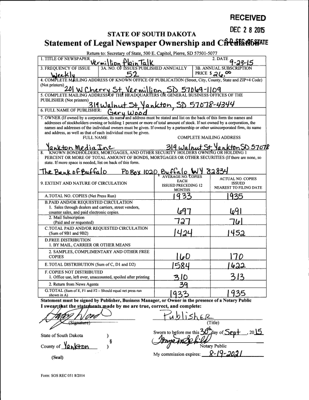 RECEIVED
DEC 28 2015
STATE OF SOUTH DAKOTA
Statement of Legal Newspaper Ownership and Circulation
Return to: Secretary of State, 500 E. Capitol, Pierre, SD 57501-5077
1. TITLE OF NEWSPAPER Vermillion Plain Talk
2. DATE 9-25-15
3. FREQUENCY OF ISSUE Weekly
3A. NO. OF ISSUES PUBLISHED ANNUALLY 52
3B. ANNUAL SUBSCRIPTION PRICE $ 26.00
4. COMPLETE MAILING ADDRESS OF KNOWN OFFICE OF PUBLICATION (Street, City, County, State and ZIP+4 Code)
(Not printer) 201 W Cherry St. Vermillion, SD 57069-1109
5. COMPLETE MAILING ADDRESS OF THE HEADQUARTERS OR GENERAL BUSINESS OFFICES OF THE
PUBLISHER (Not printer) 319 Walnut St, Yankton, SD 57078-4344
6. FULL NAME OF PUBLISHER Gary Wood
7. OWNER (If owned by a corporation, its name and address must be stated and also immediately thereunder the names and
addresses of stockholders owning or holding 1 percent or more of total amount of stock. If not owned by a corporation, the
names and addresses of the individual owners must be given. If owned by a partnership or other unincorporated firm, its name
and address, as well as that of each individual must be given.
FULL NAME COMPLETE MAILING ADDRESS
Yankton Media Inc. 319 Walnut St Yankton SD 57078
8. KNOWN BONDHOLDERS, MORTGAGES, AND OTHER SECURITY HOLDERS OWNING OR HOLDING 1
PERCENT OR MORE OF TOTAL AMOUNT OF BONDS, MORTGAGES OR OTHER SECURITIES (If there are none, so
state. If more space is needed, list on back of this form.
The Bank of Buffalo Po Box 1020, Buffalo WY 82834
9. EXTENT AND NATURE OF CIRCULATION
AVERAGE NO. COPIES EACH ISSUED PRECEDING 12 MONTHS
ACTUAL NO. COPIES ISSUED NEAREST TO FILING DATE
A. TOTAL NO. COPIES (Net Press Run) 1933 1935
B. PAID AND/OR REQUESTED CIRCULATION
1. Sales through dealers and carriers, street vendors, counter sales, and paid electronic copies. 697 691
2. Mail Subscription (Paid and or requested) 727 761
C. TOTAL PAID AND/OR REQUESTED CIRCULATION (Sum of 9B1 and 9B2) 1424 1452
D. FREE DISTRIBUTION
1. BY MAIL, CARRIER OR OTHER MEANS
2. SAMPLES, COMPLIMENTARY AND OTHER FREE COPIES 160 170
E. TOTAL DISTRIBUTION (Sum of C, D1 and D2) 1584 1622
F. COPIES NOT DISTRIBUTED
1. Office use, left over, unaccounted, spoiled after printing 310 313
2. Return from News Agents 39
G. TOTAL (Sum of E, F1 and F2 - Should equal net press run shown in A) 1933 1935
Statement must be signed by Publisher, Business Manager, or Owner in the presence of a Notary Public
I swear that the statements made by me are true, correct, and complete:
Gary Wood Publisher
(Signature) (Title)
State of South Dakota )
County of Yankton )
§
Sworn to before me this 30th day of Sept, 2015
Notary Public
(Seal)
My commission expires: 8-19-2021